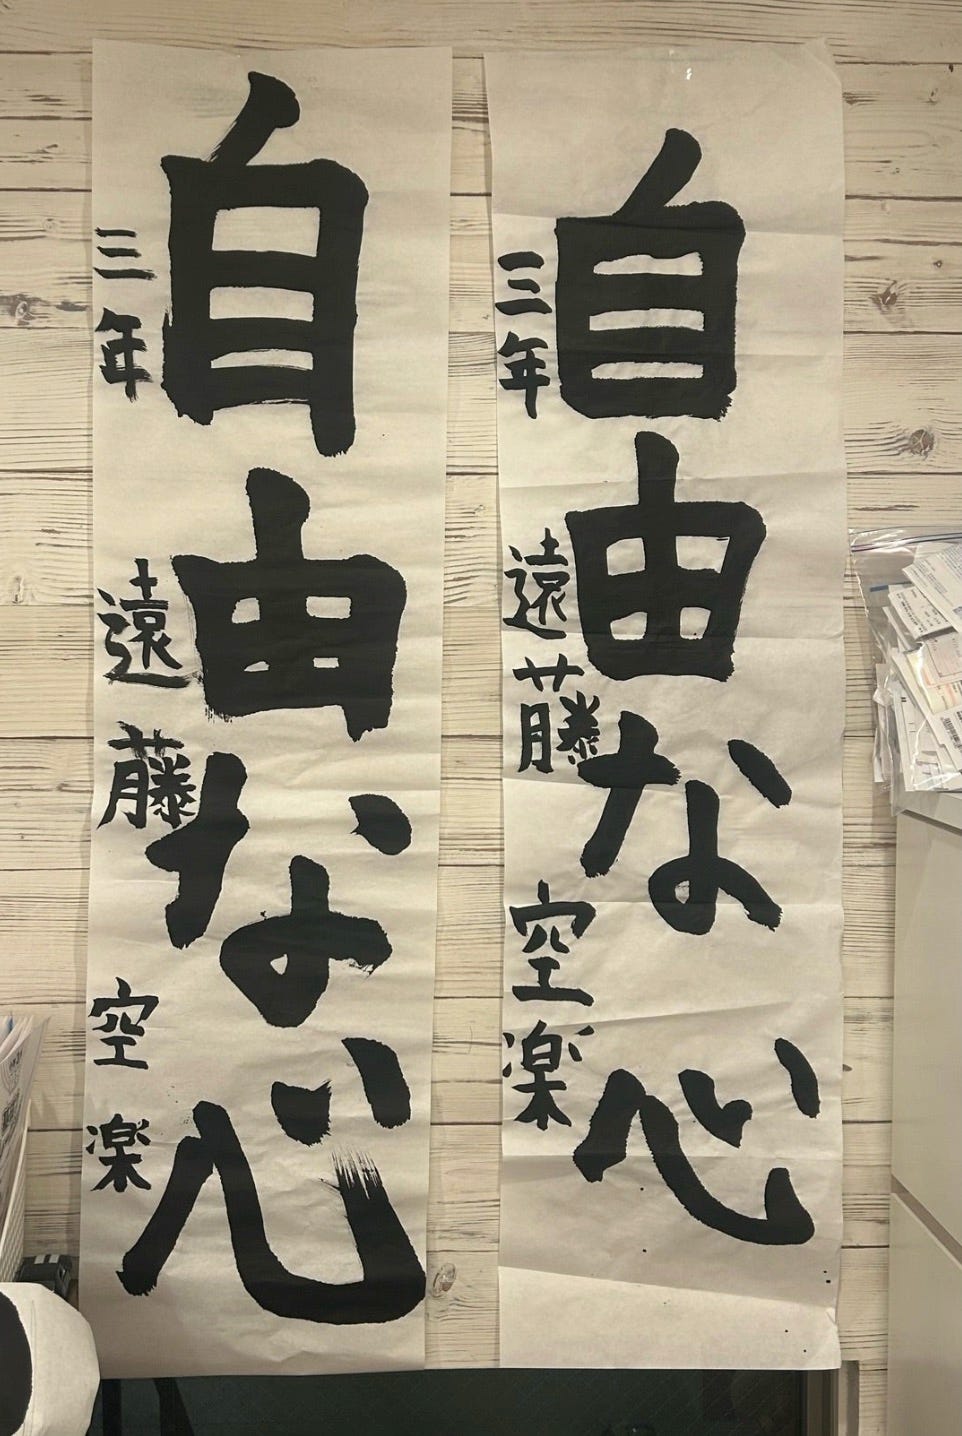 自由な心
三年 遠藤 空楽
自由な心
三年 遠藤 空楽